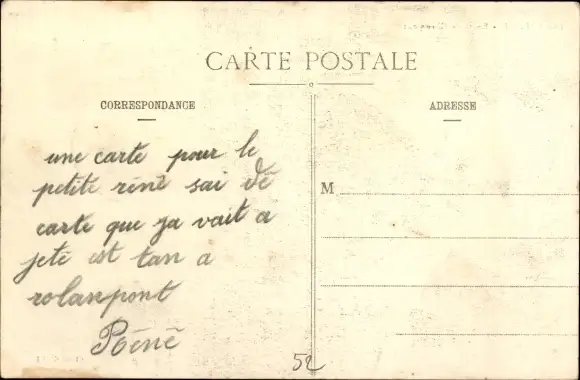 CARTE POSTALE
CORRESPONDANCE
ADRESSE
une carte pour le
petite réné sai dé
carte que ja vait a
jeté est tan a
rolanpont
Réné
M
52